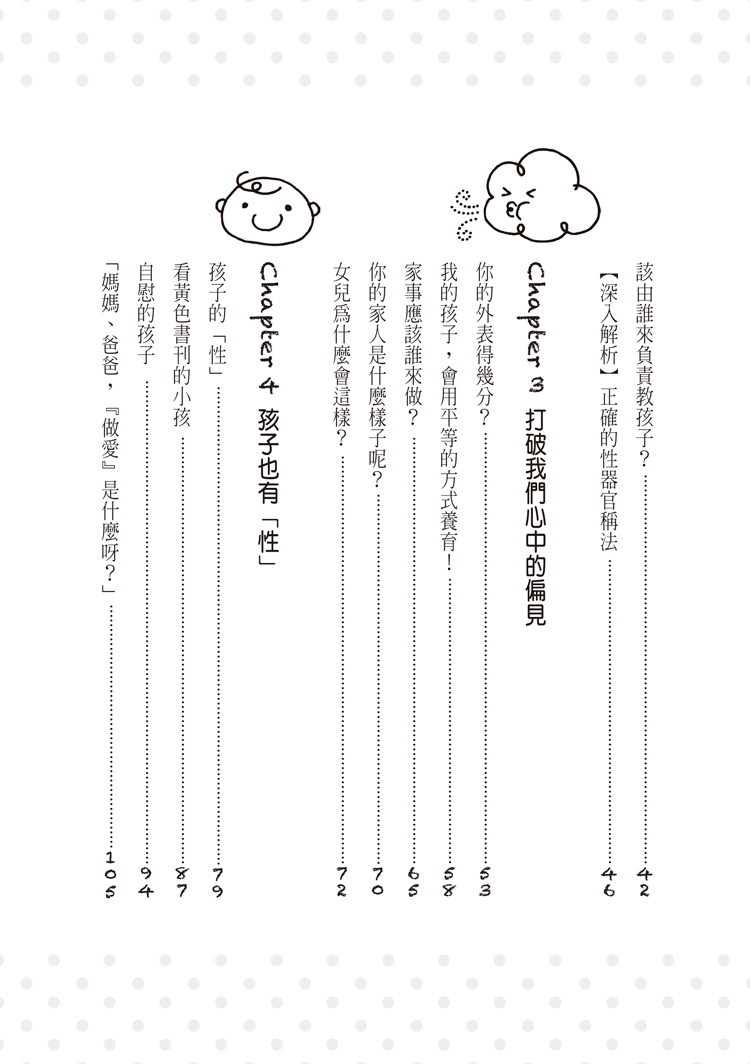 該由誰來負責教孩子？ 42
【深入解析】正確的性器官稱法 46
Chapter 3 打破我們心中的偏見
你的外表得幾分？ 53
我的孩子，會用平等的方式養育！ 58
家事應該誰來做？ 65
你的家人是什麼樣子呢？ 70
女兒為什麼會這樣？ 72
Chapter 4 孩子也有「性」
孩子的「性」 79
看黃色書刊的小孩 87
自慰的孩子 94
「媽媽、爸爸，『做愛』是什麼呀？」 105